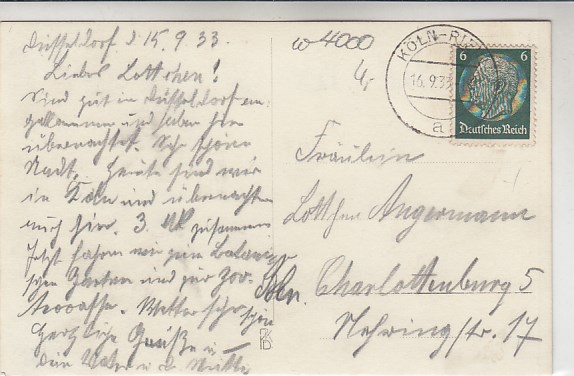 Düsseldorf d. 15. 9. 33.
Liebes Lottchen!
Sind gut in Düsseldorf an-
gekommen und haben hier
übernachtet. Sehr schöne
Stadt. Heute sind wir
in Köln und übernachten
auch hier. 3. M zusammen
Jetzt fahren wir zum Botani-
schen Garten und zur Zoo-
Terrasse. Wetter sehr schön
Herzliche Grüße
Dein Vater u. d. Mutti
w 4000
4,-
KÖLN-RI
16.9.33
a
6 6
Deutsches Reich
Fräulein
Lottchen Angermann
Bln. Charlottenburg 5
Nehringstr. 17